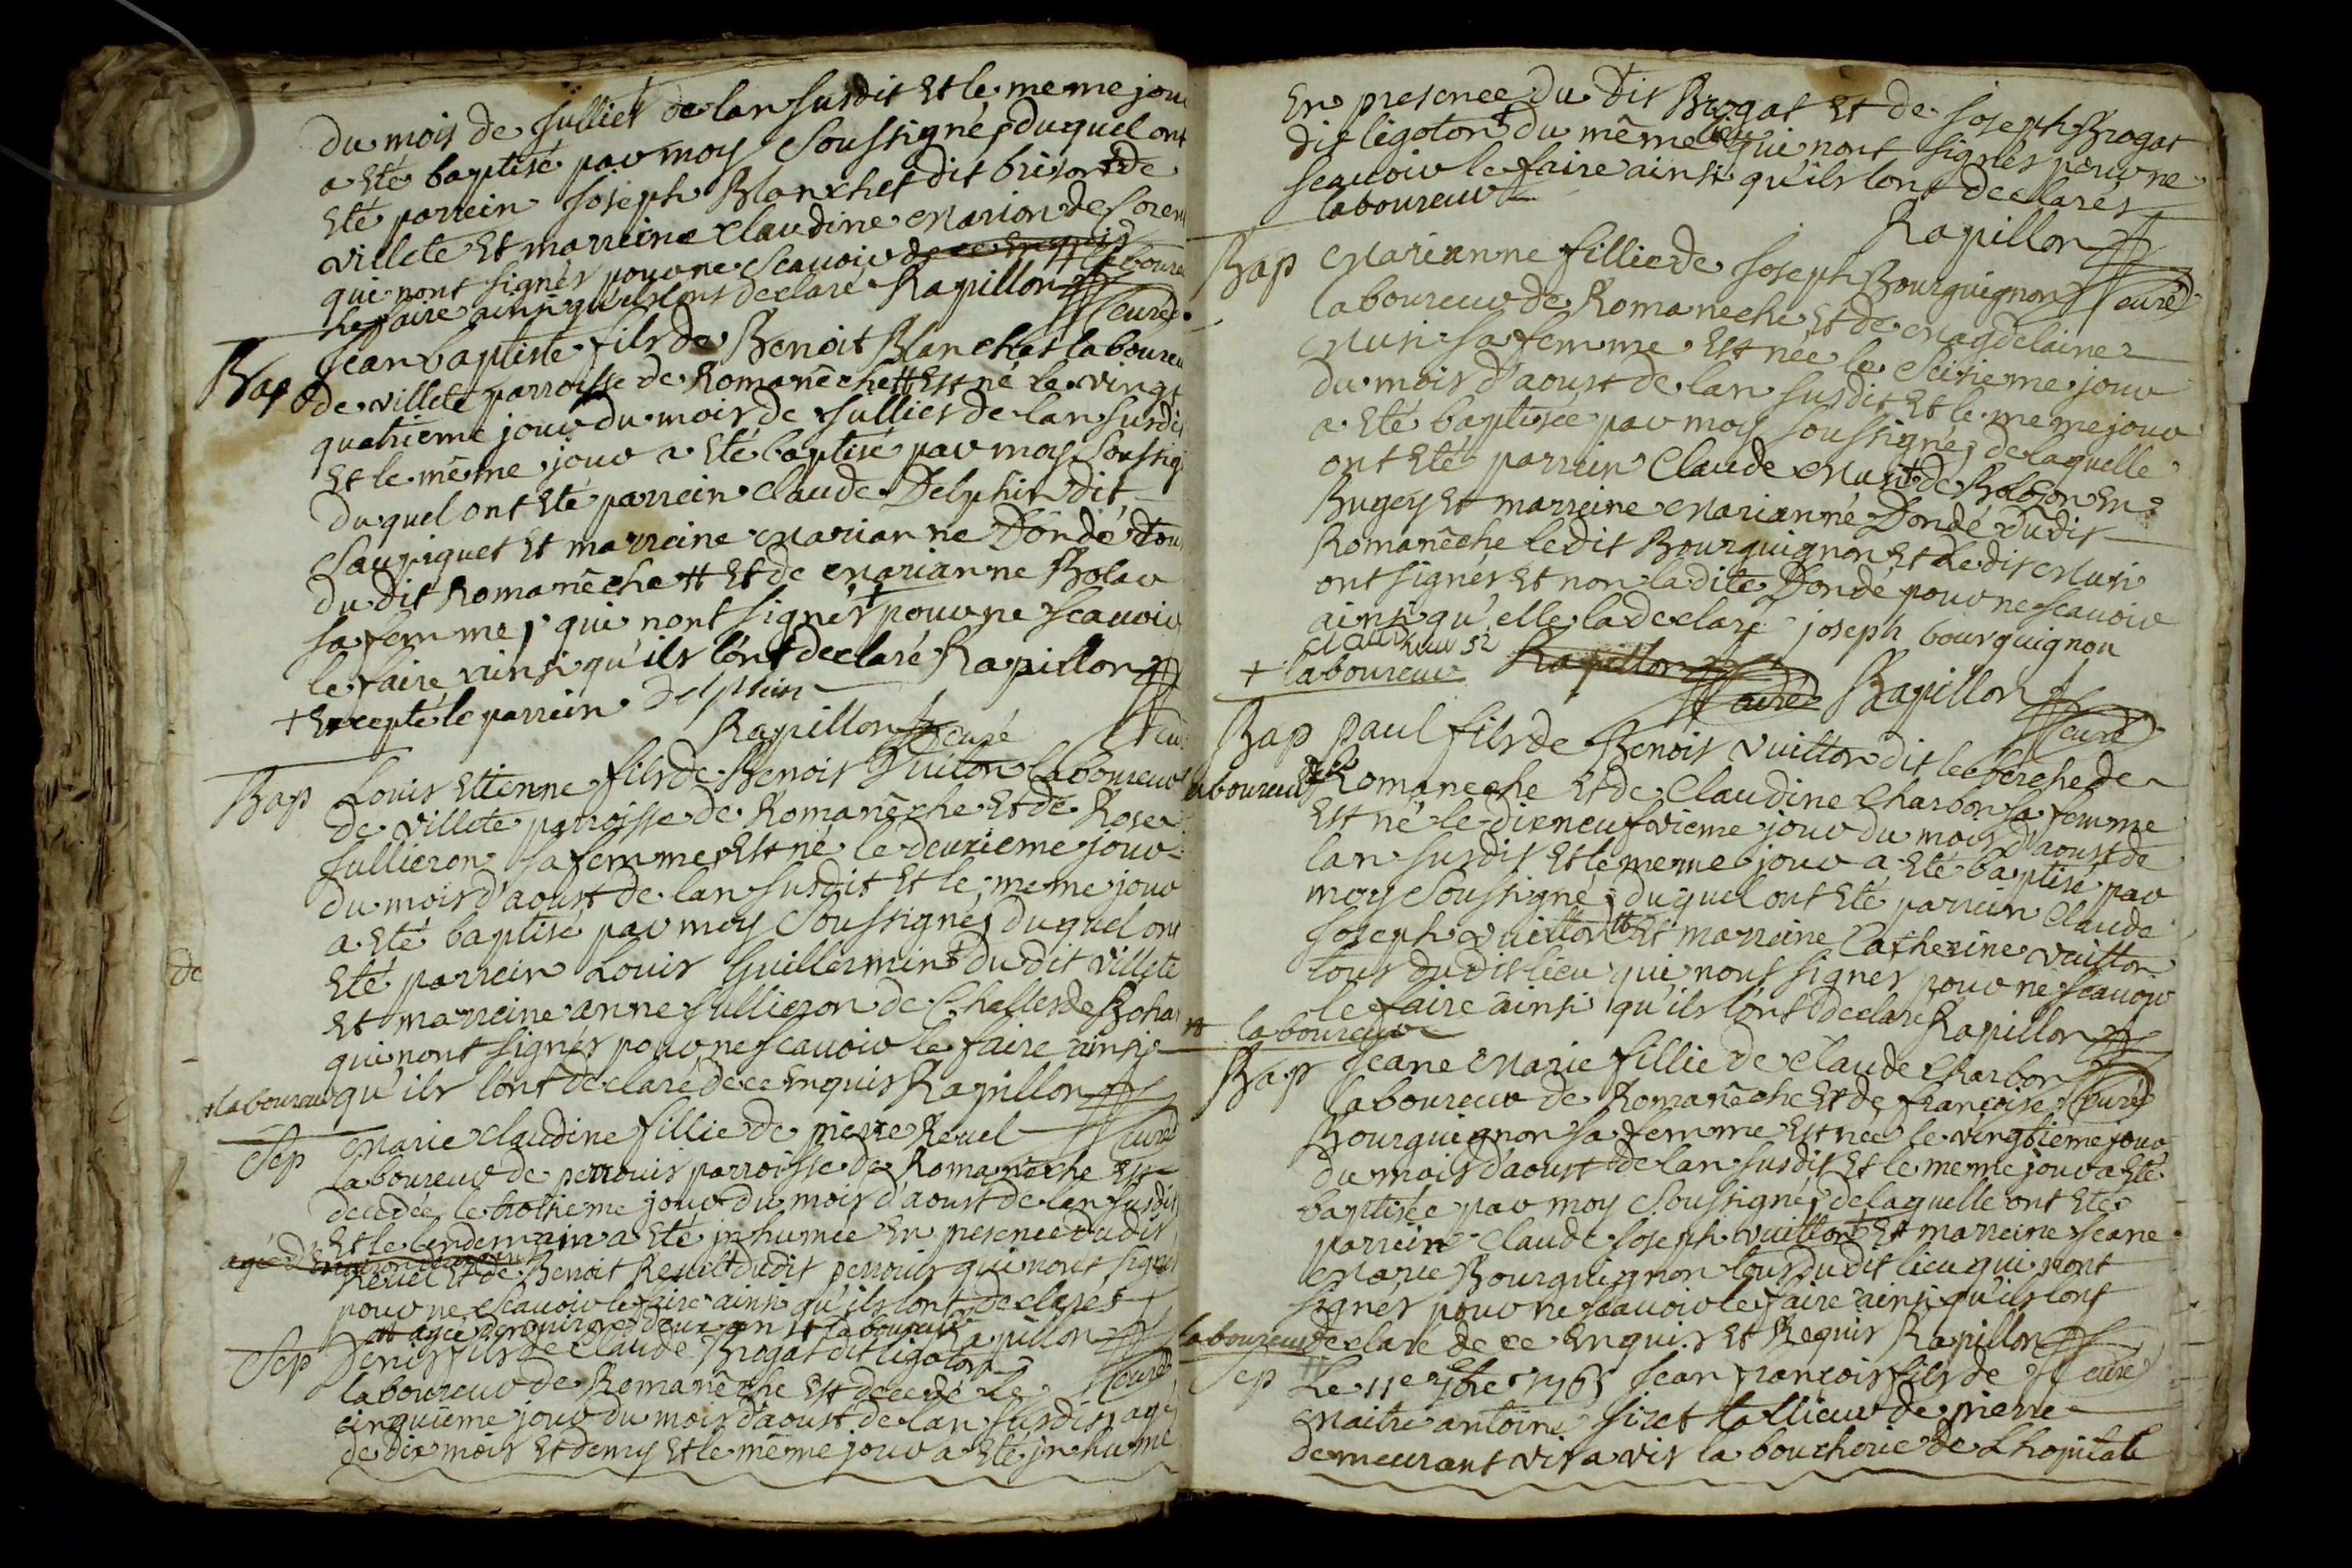 du mois de Julliet de lan susdit Et le meme jou
a Eté baptisé par moy Soussigné, duquel ont
Eté parrein Joseph Blanchet dit brison + de
villete Et marreine Claudine Marion de
qui nont signés pour ne Scavoir de ce Enquis laboure
le faire ainsi qu'ils lont declaré Rapillon curé
Bap Jean baptiste fils de Benoit Blanchet laboureu
de villete parroisse de Romanêche # Est né le vingt
quatrieme jour du mois de Julliet de lan Susdi
Et le même jour a Eté baptisé par moy Soussig
du quel ont Eté parrein Claude Delphin dit
Saupiquet Et marreine Marianne Dondé tou
du dit Romanêche # Et de Marianne Bolau
sa femme, qui nont signés + pour ne Scavoir
le faire ainsi qu'ils lont declaré Rapillon
+ Excepté le parrein Delphin
Rapillon curé cu
Bap Louis Etienne fils de Benoit Vuiton laboureur
de villete parroisse de Romanêche Et de Rose
Jullieron Sa femme, Est né le deuxieme jour
du mois d'aoust de lan Susdit Et le meme jour
a Eté baptisé par moy Soussigné, duquel ont
Eté parrein Louis Guillermin + du dit villete
de
Et marreine anne Jullieron de Chelles de Boha
qui nont signés pour ne Scavoir le faire ainsi
+ laboureur qu'ils lont declaré de ce Enquis Rapillon
Sep Marie Claudine fillie de pierre Revel curé
laboureur de perrouis parroisse de Romanêche Est
decedée le troisieme jour du mois d'aoust de lan susdit
Et le lendemain a Eté inhumée En presence du dit
agée d'Environ
Revel Et de Benoit Revel + du dit perrouis qui nont signés
pour ne Scavoir le faire ainsi qu'ils lont declarés +
# agée denviron deux an # laboureur Rapillon
Sep Denis fils de Claude Brogat dit ligoton curé
laboureur de Romanêche Est decedé le
cinquieme jour du mois d'aoust de lan Susdit, agé
de dix mois Et demy Et le même jour a Eté inhumé
En presence du dit Brogat Et de Joseph Brogat
dit ligoton + du même lieu qui nont signés pour ne
scavoir le faire ainsi qu'ils lont declarés
laboureur Rapillon
Bap Marianne fillie de Joseph Bourguignon curé
laboureur de Romaneche Et de Magdelaine
Musi sa femme Est née le Seizieme jour
du mois d'aoust de lan susdit Et le meme jour
a Eté baptisée par moy soussigné, de laquelle
ont Eté parrein Claude Musi + de Bolozon En
Bugey Et marreine Marianne Dondé du dit
Romanêche le dit Bourguignon Et Le dit Musi
ont signés Et non ladite Dondé pour ne Scavoir
ainsi qu'elle la declaré joseph bourguignon
+ laboureur Rapillon curé Rapillon curé
Bap paul fils de Benoit Vuitton dit le berche de
laboureur Romaneche Et de Claudine Charbon sa femme
Est né le dixneufvieme jour du mois d'aoust de
lan susdit Et le meme jour a Eté baptisé par
moy Soussigné, duquel ont Eté parrein Claude
Joseph Vuitton # Et marreine Catherine Vuitton
tous du dit lieu qui nont signés pour ne scavoir
le faire ainsi qu'ils lont declaré Rapillon
# laboureur
Bap Jeane Marie fillie de Claude Charbon curé
laboureur de Romanêche Et de françoise
Bourguignon sa femme Est née le vingtieme jour
du mois d'aoust de lan susdit Et le meme jour a Eté
baptisée par moy Soussigné, de laquelle ont Eté
parrein Claude Joseph Vuitton + Et marreine Jeane
Marie Bourguignon tous du dit lieu qui nont
signés pour ne scavoir le faire ainsi qu'ils lont
laboureur declaré de ce Enquis Et Requis Rapillon
Sep Le 11e 7bre 1765 Jean françois fils de curé
Maitre antoine Siret tallieur de pierre
demeurant vis a vis la boucherie de Lhopitale